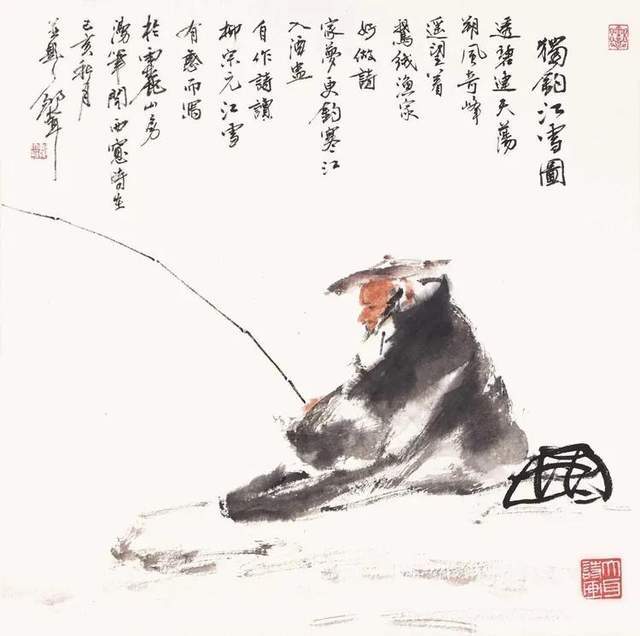 獨釣江雪圖
透碧連天蕩
朔風奇峰
遥望着
鵝絨漁家
好做詩
家夢更釣寒江
入酒盅
自作詩讀
柳宗元江雪
有感而寫
於雲龍山房
筆閣西窗時在
己亥秋月